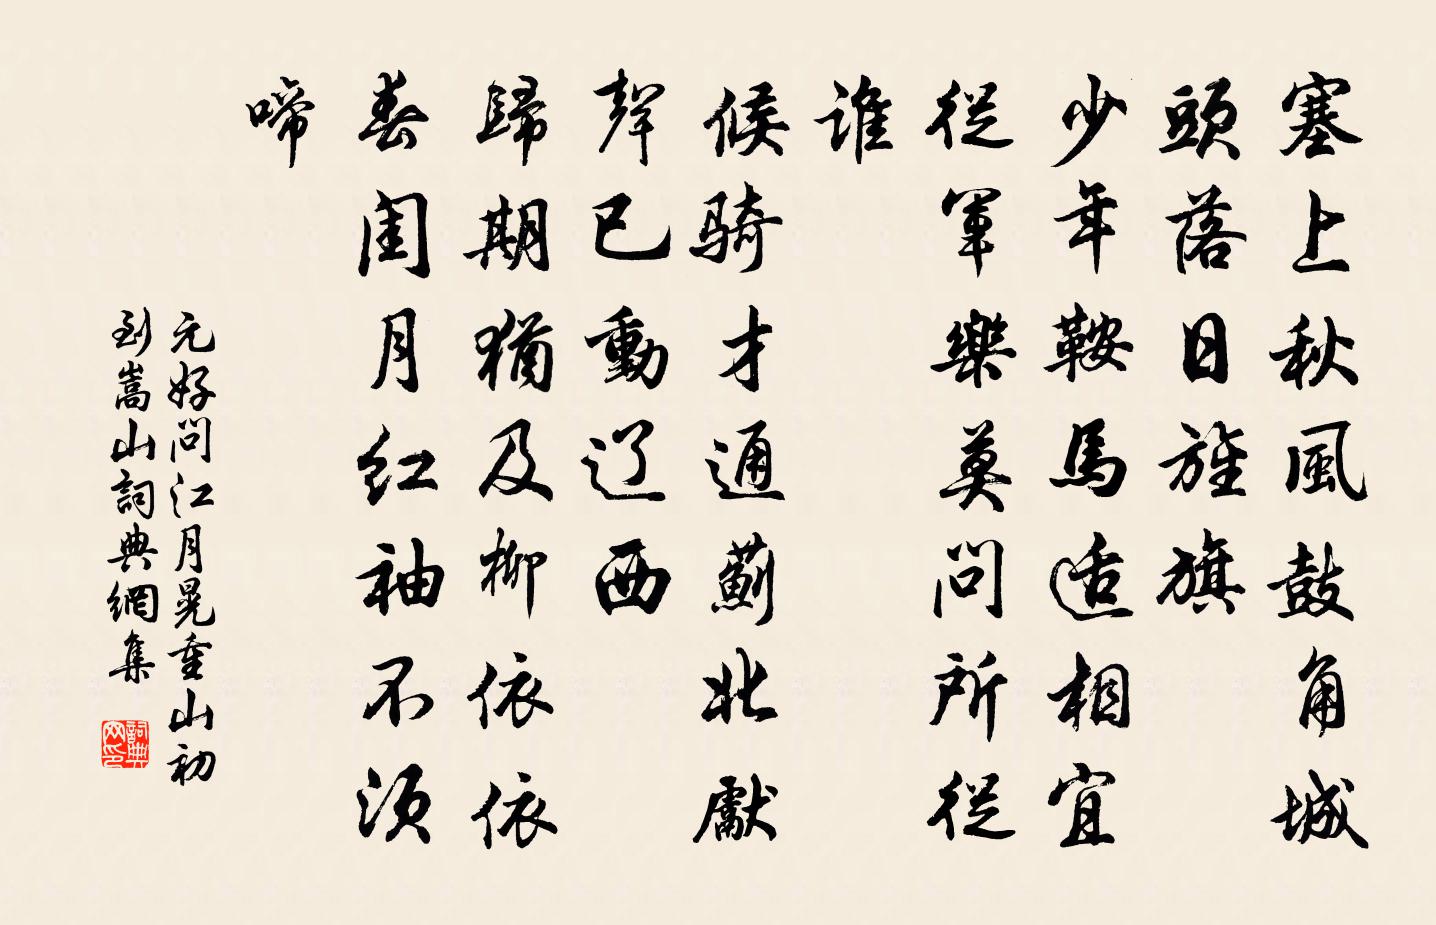 塞上秋風鼓角城
頭落日旌旗
少年鞍馬适相宜
從軍樂莫問所從
誰
候騎才通薊北獻
聲已動辽西
歸期猶及柳依依
春閨月红袖不須
啼
元好問江月晃重山初
到嵩山詞典網集
詞典网印